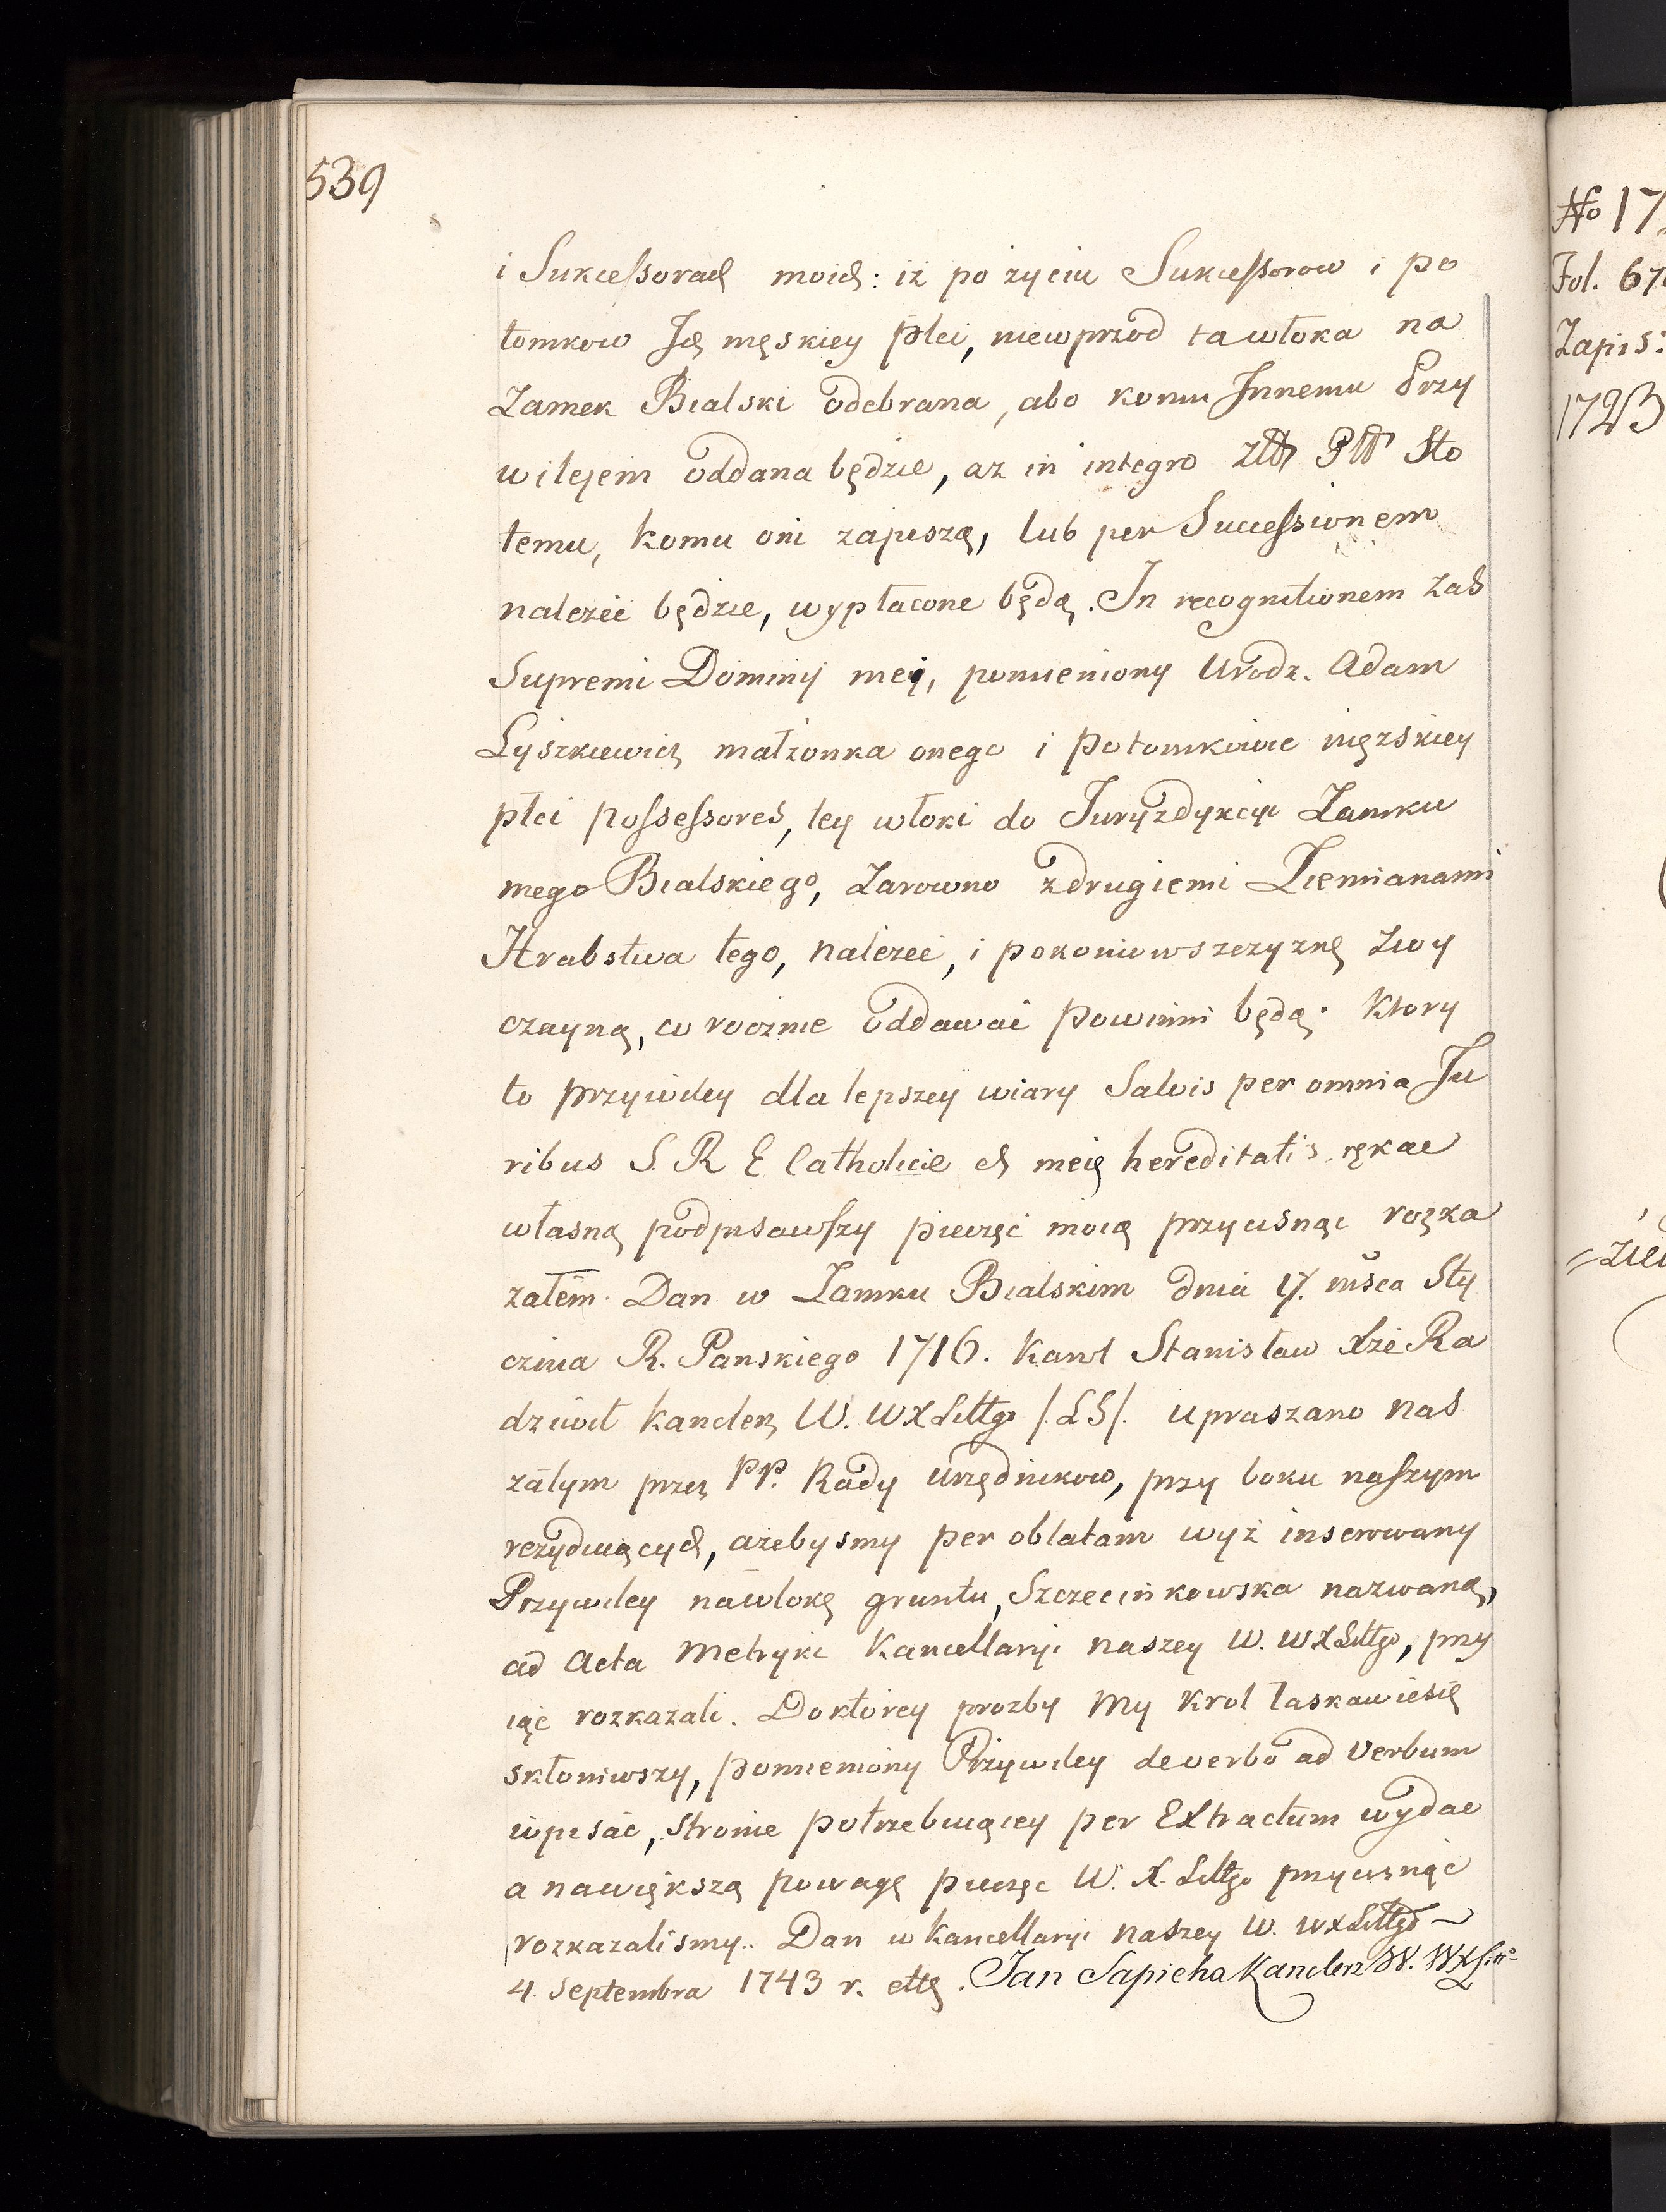 539
i Sukcessorach moich: iż po życiu Sukcessorow i po
tomkow Ich męskiey płci, niewprzod ta włoka na
Zamek Bialski odebrana, abo komu Innemu Przy
wilejem oddana będzie, aż in integro Złł Pll Sto
temu, komu oni zapiszą, lub per Successionem
należeć będzie, wypłacone będą. In recognitionem zaś
Supremi Dominij mei, pomieniony Urodz. Adam
Łyszkiewicz małżonka onego i potomkowie męzskiey
płci possessores, tey włoki do Juryzdykcyi Zamku
mego Bialskiego, Zarowno z drugiemi Ziemianami
Hrabstwa tego, należeć, i pokoniewszczyznę zwy
czayną, co rocznie oddawać powinni będą. Ktory
to przywiley dla lepszey wiary Salvis per omnia Ju
ribus S. R E Catholicæ et meię hereditatis, ręką
własną podpisawszy pieczęć moią przycisnąć rozka
załem. Dan w Zamku Bialskim dnia 17. msca Sty
cznia R. Panskiego 1716. Karol Stanisław Xże Ra
dziwił Kanclerz W. WXLittgo /.LS/. upraszano nas
zatym przez PP. Rady Urzędnikow, przy boku naszym
rezyduiących, ażebysmy per oblatam wyż inserowany
Przywiley na włokę gruntu, Szczecinkowska nazwaną,
ad Acta Metryki Kancellaryi naszey W. WXLittgo, przy
iąć rozkazali. Doktorey prozby My Krol łaskawie się
skłoniwszy, pomieniony Przywiley de verbo ad verbum
wpisać, stronie potrzebuiącey per Extractum wydać
a nawiększą powagę pieczęć W. X. Littgo przycisnąć
rozkazalismy.. Dan w Kancellaryi naszey W. WXLittgo
4. Septembra 1743 r. ettc. Jan Sapieha Kanclerz W. WXLitt
No 17
Fol. 67
Zapis:
1723